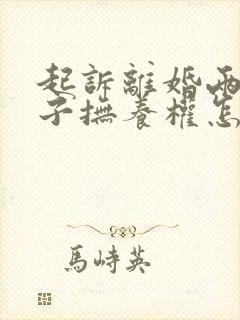 起訴離婚兩
子撫養權怎
馬峙英